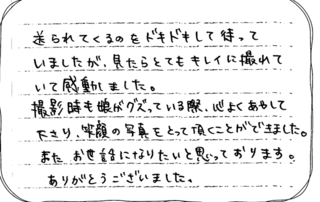 送られてくるのをドキドキして待って
いましたが、見たらとてもキレイに撮れて
いて感動しました。
撮影時も娘がグズっている際、心よくあやして
下さり、笑顔の写真をとって頂くことができました。
また お世話になりたいと思っております。
ありがとうございました。